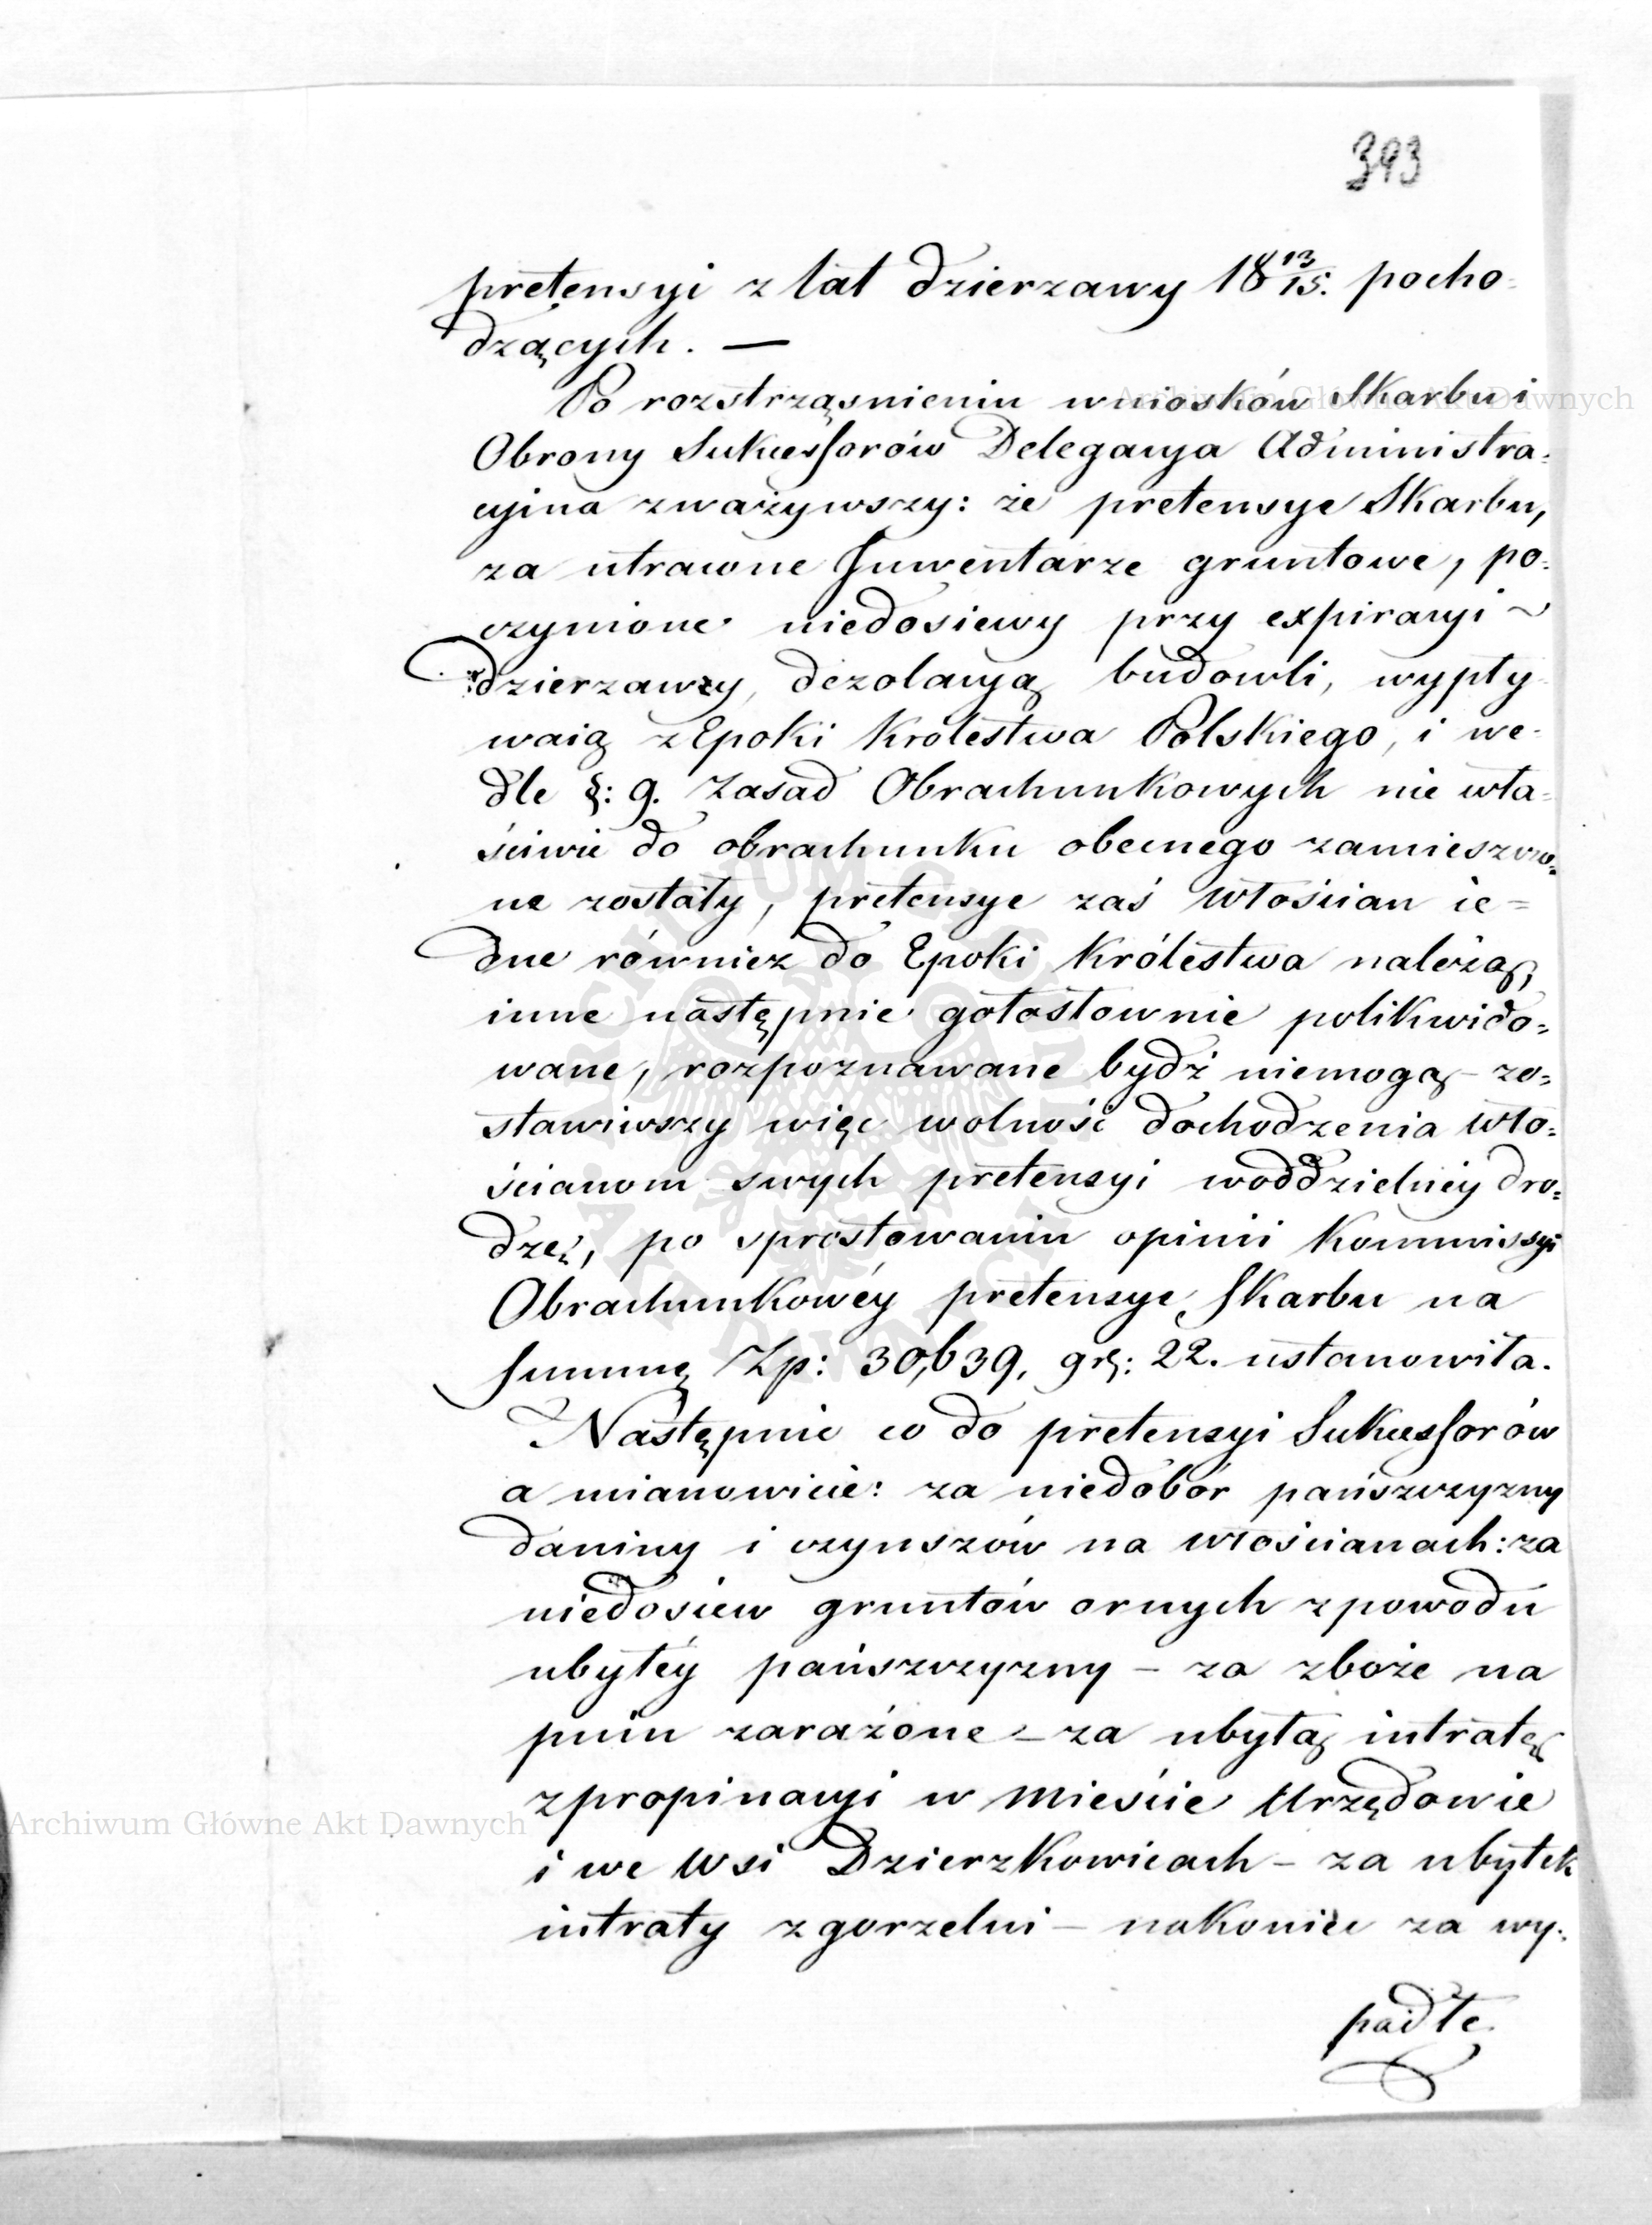 393
pretensyi z lat dzierzawy 18 13/15: pocho=
dzących. —
Po rozstrząsnieniu wniosków Skarbu i
Obrony Sukcessorów Delegacya Administra=
cyina zważywszy: że pretensye Skarbu,
za utracone Inwentarze gruntowe, po=
czynione niedosiewy przy expiracyi ~
dzierzawy, dezolacyą budowli, wypły=
waią z Epoki Królestwa Polskiego, i we=
dle §: 9. Zasad Obrachunkowych nie wła=
ściwie do obrachunku obecnego zamieszczo=
ne zostały, pretensye zaś Włościan ie=
dne równiez do Epoki Królestwa należą,
inne następnie gołosłownie polikwido=
wane, rozpoznawane bydź niemogą – zo=
stawiwszy więc wolność dochodzenia Wło=
ścianom swych pretensyi woddzielnéy dro=
dze, po sprostowaniu opinii Kommissyi
Obrachunkowéy pretensye Skarbu na
Summę Zp: 30,639, gr: 22. ustanowiła.
Następnie co do pretensyi Sukcessorów
a mianowicie: za niedobór pańszczyzny
daniny i czynszów na włościanach: za
niedosiew gruntów ornych z powodu
ubyłéy pańszczyzny – za zboże na
pniu zarażone – za ubyłą intratę
z propinacyi w Mieście Urzędowie
i we Wsi Dzierzkowicach – za ubytek
intraty z gorzelni – nakoniec za wy=
padłe
Archiwum Główne Akt Dawnych
Archiwum Główne Akt Dawnych
ARCHIWUM GŁÓWNE
AKT DAWNYCH